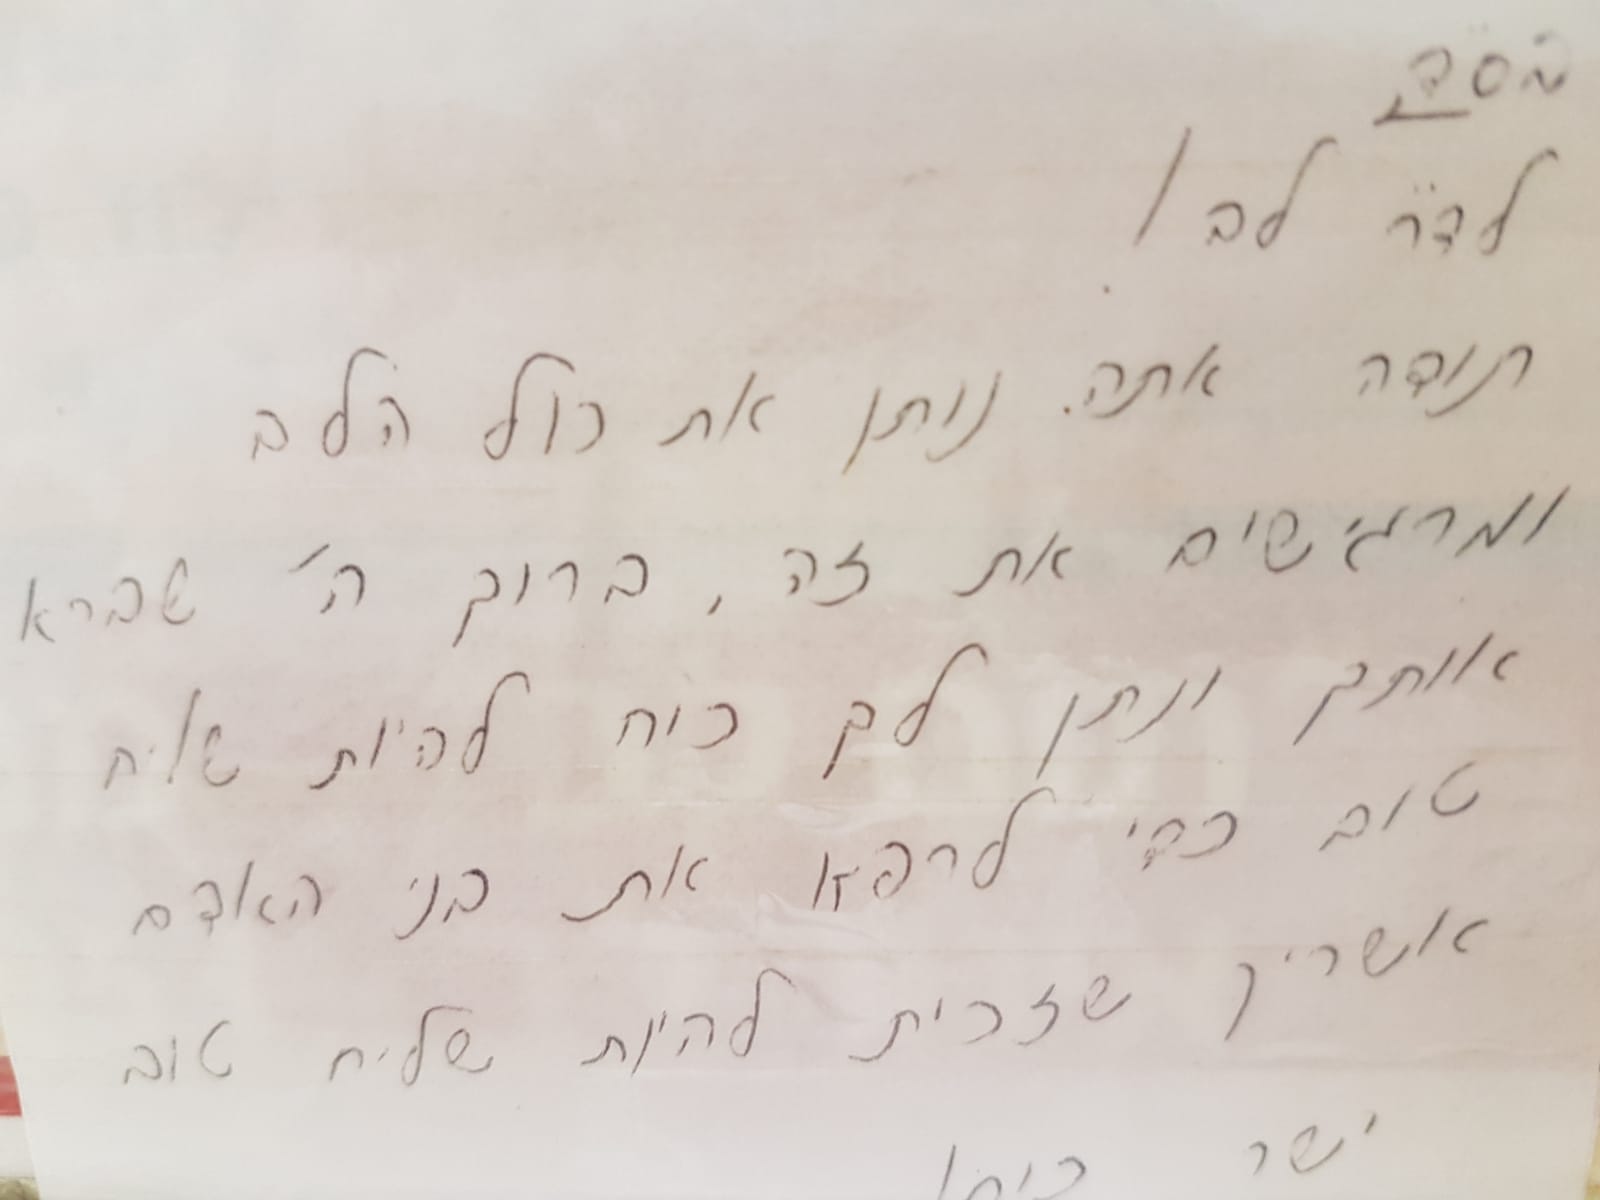 בס"ד
לד"ר לב!
תודה אתה. נותן את כול הלב
ומרגישים את זה, ברוך ה' שברא
אותך ונתן לך כוח להיות שליח
טוב כדי לרפא את בני האדם
אשריך שזכית להיות שליח טוב
ישר כוח!